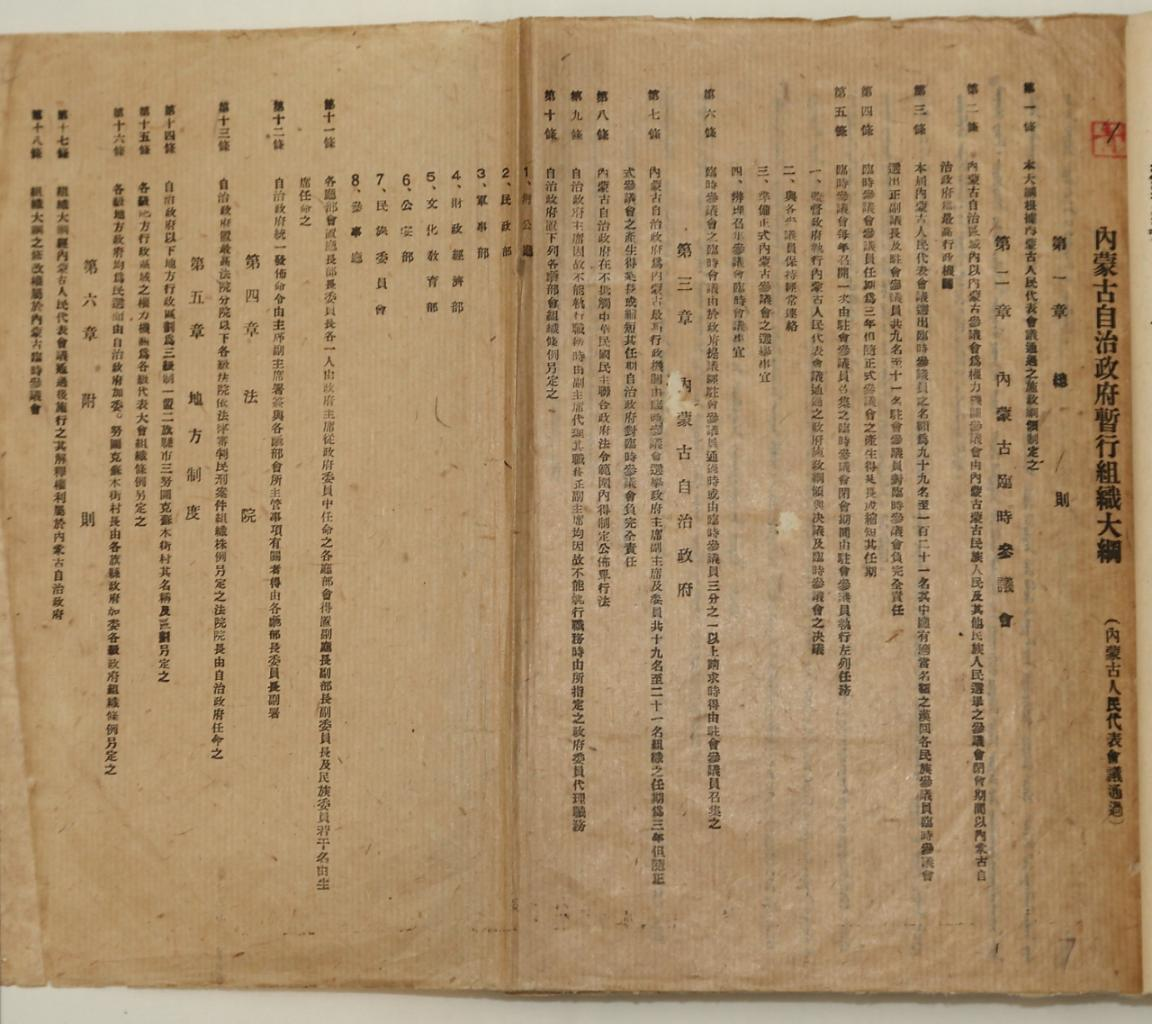 內蒙古自治政府暫行組織大綱 （內蒙古人民代表會議通過）
第一章 總則
第一條 本大綱根據內蒙古人民代表會議通過之施政綱領制定之
第二章 內蒙古臨時參議會
第二條 內蒙古自治區域內以內蒙古參議會為權力機關參議會由內蒙古蒙古民族人民及其他民族人民選舉之參議會閉會期間以內蒙古自
治政府為最高行政機關
第三條 本屆內蒙古人民代表會議選出臨時參議員之名額為九十九名至一百二十一名其中應有適當名額之漢回各民族參議員臨時參議會
選出正副議長及駐會參議員共九名至十一名駐會參議員對臨時參議會負完全責任
第四條 臨時參議會參議員任期為三年但隨正式參議會之產生得延長或縮短其任期
第五條 臨時參議會每年召開一次由駐會參議員召集之臨時參議會閉會期間由駐會參議員執行左列任務
一、監督政府執行內蒙古人民代表會議通過之政府施政綱領與決議及臨時參議會之决議
二、與各參議員保持經常連絡
三、準備正式內蒙古參議會之選舉事宜
四、辦理召集參議會臨時會議事宜
第六條 臨時參議會之臨時會議由於政府提議經駐會參議員通過時或由臨時參議員三分之一以上請求時得由駐會參議員召集之
第三章 內蒙古自治政府
第七條 內蒙古自治政府為內蒙古最高行政機關由臨時參議會選舉政府主席副主席及委員共十九名至二十一名組織之任期為三年但隨正
式參議會之產生得延長或縮短其任期自治政府對臨時參議會負完全責任
第八條 內蒙古自治政府在不抵觸中華民國民主聯合政府法令範圍內得制定公佈單行法
第九條 自治政府主席因故不能執行職務時由副主席代理其職務正副主席均因故不能執行職務時由所指定之政府委員代理職務
第十條 自治政府置下列各廳部會組織條例另定之
1、辦公廳
2、民政部
3、軍事部
4、財政經濟部
5、文化教育部
6、公安部
7、民族委員會
8、參事廳
第十一條 各廳部會置廳長部長委員長各一人由政府主席從政府委員中任命之各廳部會得置副廳長副部長副委員長及民族委員若干名由主
席任命之
第十二條 自治政府統一發佈命令由主席副主席署簽與各廳部會所主管事項有關者得由各廳部長委員長副署
第四章 法院
第十三條 自治政府置最高法院分院以下各級法院依法律審判民刑案件組織條例另定之法院院長由自治政府任命之
第五章 地方制度
第十四條 自治政府以下地方行政區劃為三級制一盟二旗縣市三努圖克蘇木街村其名稱及區劃另定之
第十五條 各級地方行政區域之權力機關為各級代表大會組織條例另定之
第十六條 各級地方政府均為民選而由自治政府加委。努圖克蘇木街村長由各旗縣政府加委各級政府組織條例另定之
第六章 附則
第十七條 組織大綱經內蒙古人民代表會議通過後施行之其解釋權利屬於內蒙古自治政府
第十八條 組織大綱之修改權屬於內蒙古臨時參議會
7